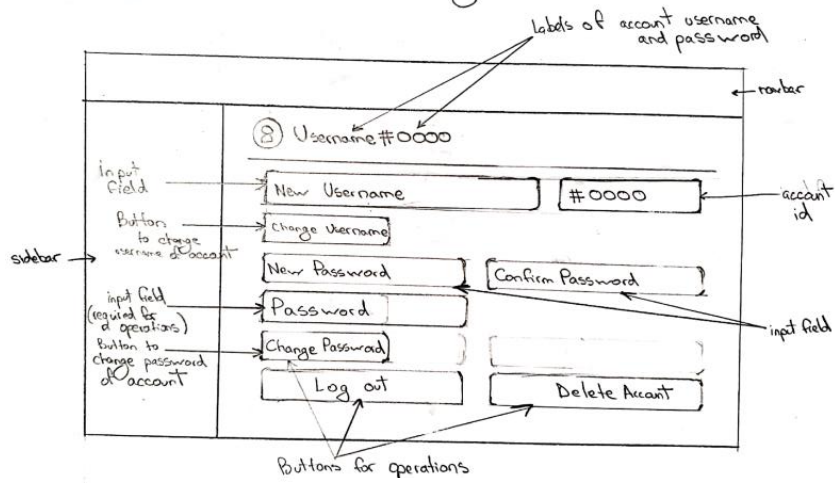 Labels of account username
and password
navbar
Username #0000
input
field
New Username
#0000
account
id
Button
to change
username of account
Change Username
sidebar
New Password
Confirm Password
input field
(required for
operations)
Password
input field
Button to
change password
of account
Change Password
Log out
Delete Account
Buttons for operations